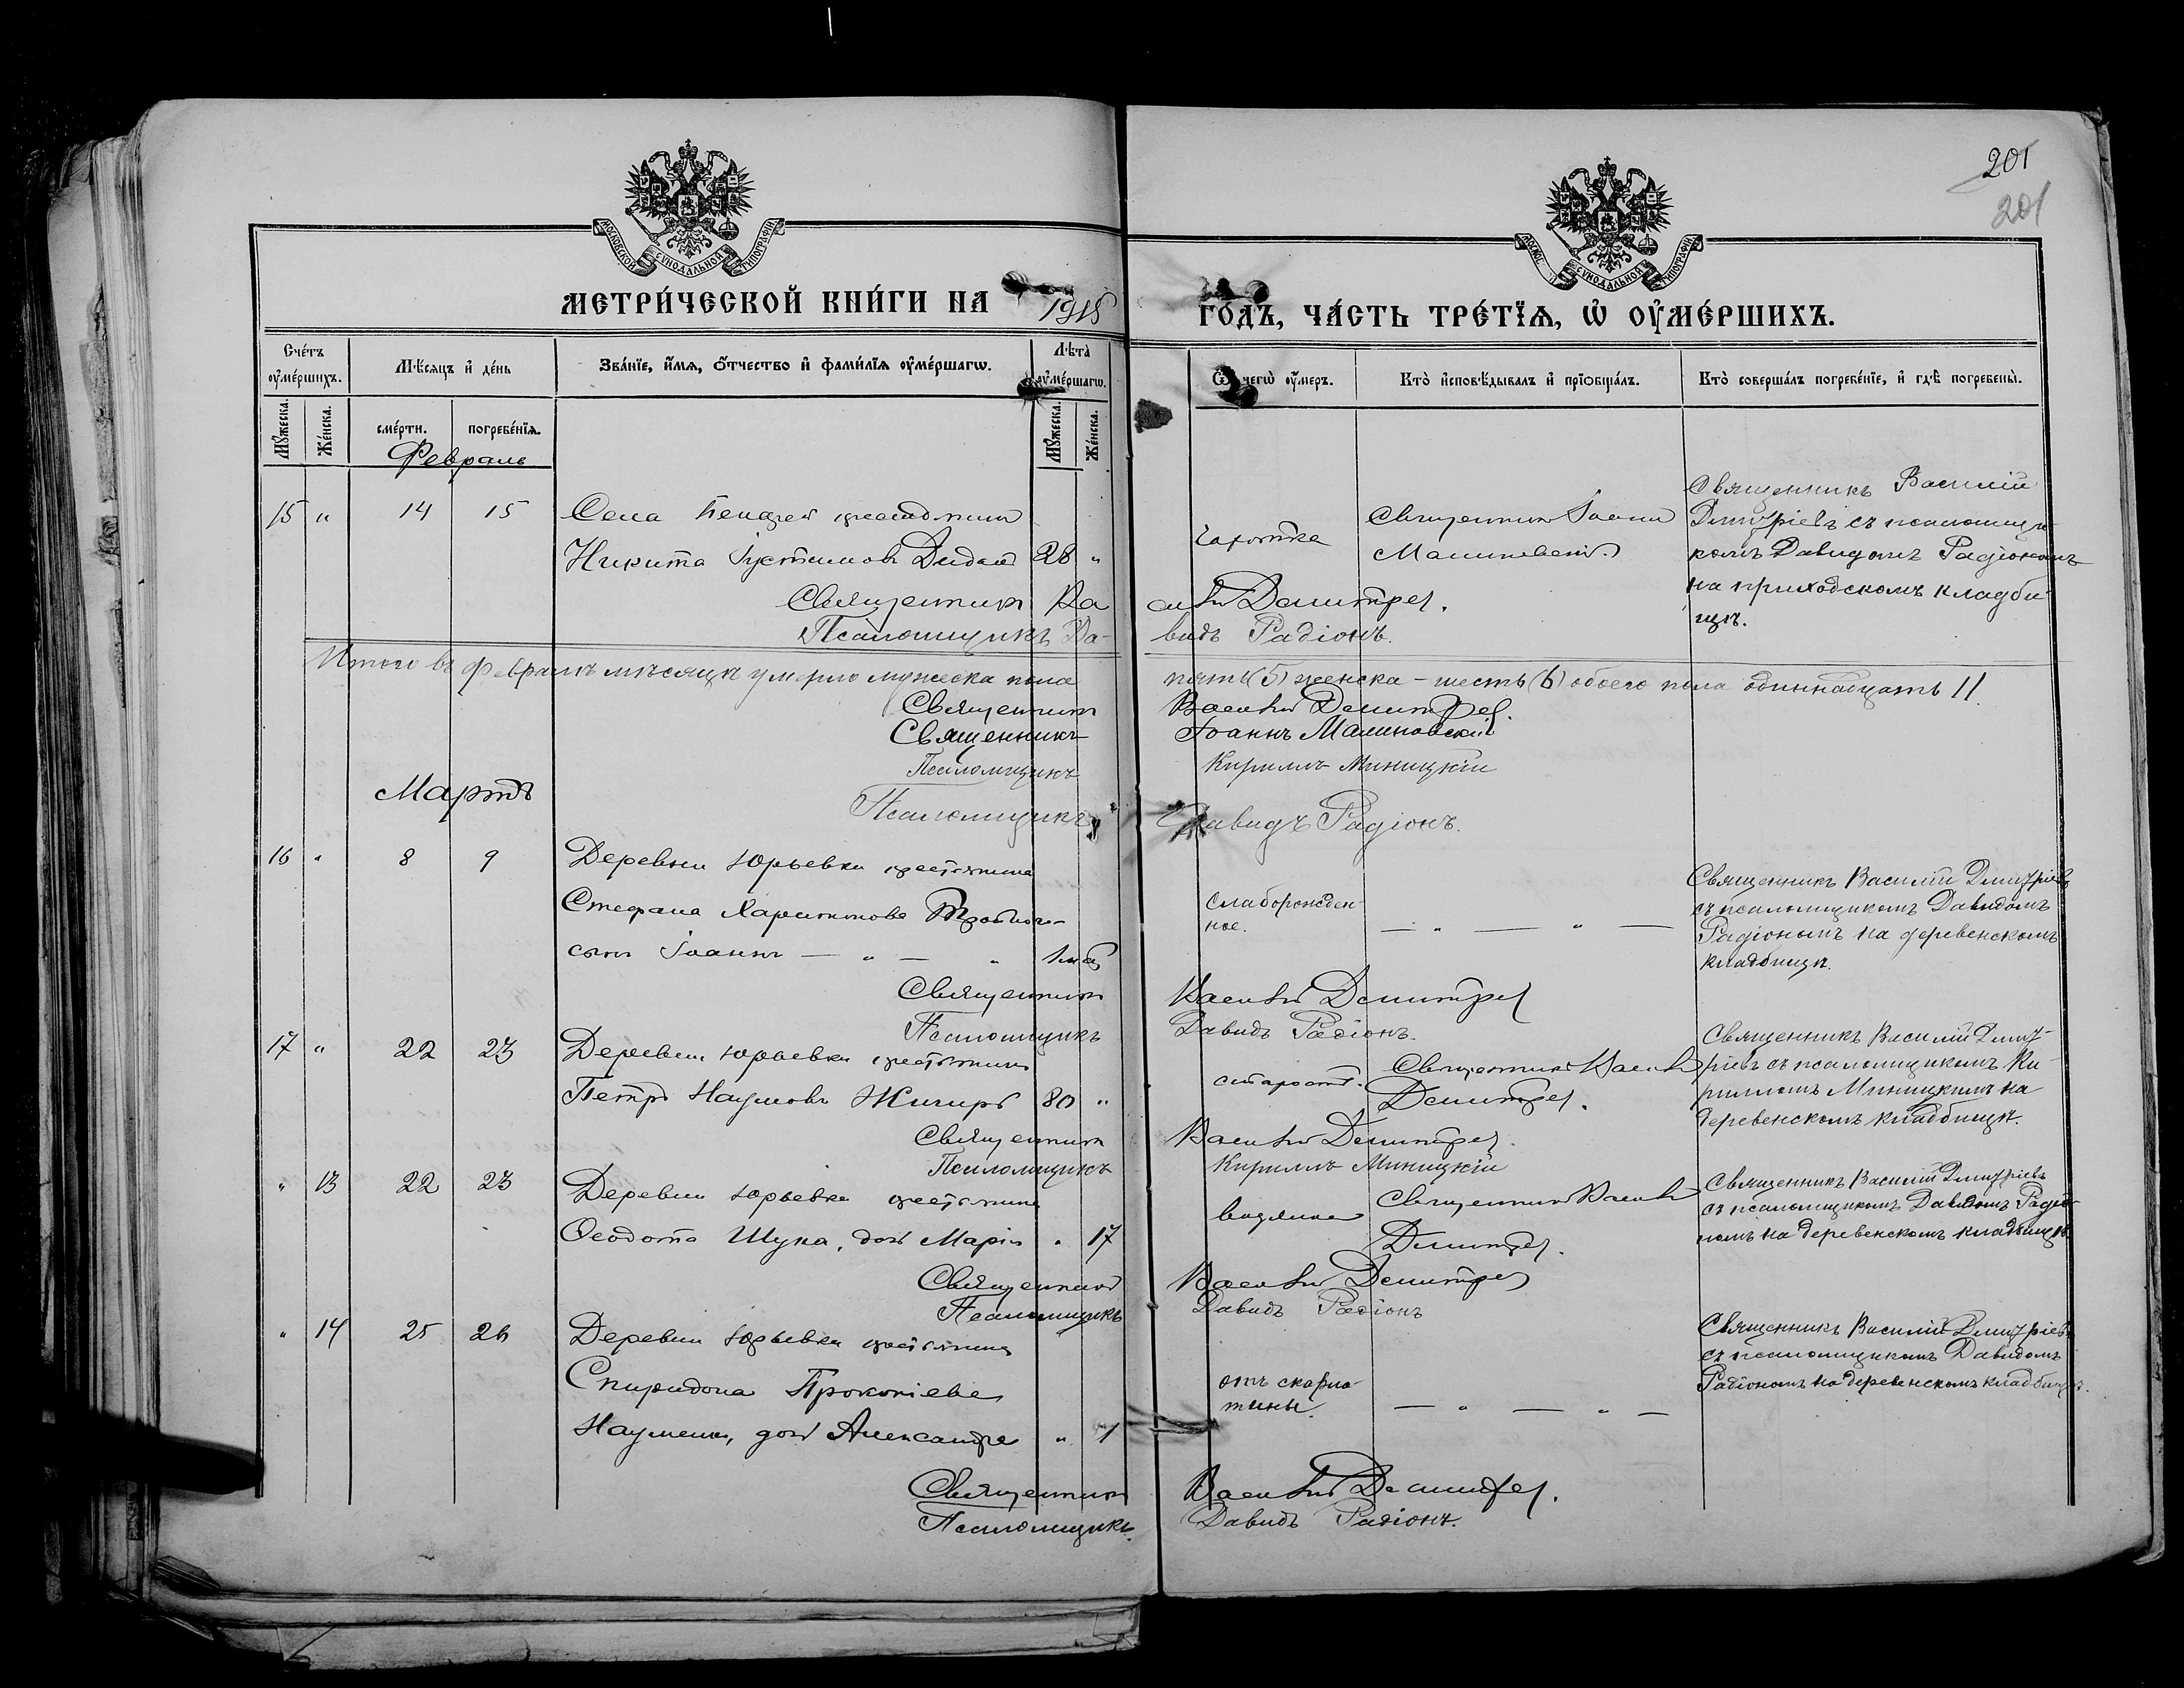 201
201
МОСКОВСКОЙ СУНОДАЛЬНОЙ ТИПОГРАФІИ
МЕТРИ́ЧЕСКОЙ КНИ́ГИ НА 1918 ГО́ДЪ, ЧА́СТЬ ТРЕ́ТЇѦ, Ѡ҆ ОУ҆МЕ́РШИХЪ.
Сче́тъ оу҆ме́ршихъ.
Мѣ́сяцъ и҆ де́нь
Зва́нїе, и҆́мѧ, ѻ҆́тчество и҆ фами́лїѧ оу҆ме́ршагѡ.
Лѣ́та оу҆ме́ршагѡ.
Ѿ чегѡ̀ оу҆́меръ.
Кто̀ и҆сповѣ́дывалъ и҆ прїѡбща́лъ.
Кто̀ соверша́лъ погребе́нїе, и҆ гдѣ̀ погребены̀.
Мꙋ́жеска. Же́нска. сме́рти. погребе́нїѧ. Мꙋ́жеска. Же́нска.
Февраль
15 " 14 15 Села крестьянин
Никита Іустиновъ Дидык 28 "
чахотка
Священникъ Іоаннъ
Малиновскій.
Священникъ Василій
Дмитріевъ съ псаломщи
комъ Давидомъ Радіономъ
на приходскомъ кладби
щѣ.
Священникъ Василій Димитріев.
Псаломщикъ Давидъ Радіонъ.
Итого въ Февралѣ мѣсяцѣ умерло мужеска пола пять (5) женска – шесть (6) обоего пола одиннадцать 11.
Священникъ Василій Димитріев.
Священникъ Іоаннъ Малиновскій
Псаломщикъ Кириллъ Миницкій
Мартъ
Псаломщикъ Давидъ Радіонъ.
16 " 8 9 Деревни Юрьевки крестьянина
Стефана Харитонова
сынъ Іоаннъ — " — "
слаборожден-
ное.
— " — " —
Священникъ Василій Дмитріевъ
съ псаломщикомъ Давидомъ
Радіономъ на деревенскомъ
кладбищѣ.
Священникъ Василій Димитріев
Псаломщикъ Давидъ Радіонъ.
17 " 22 23 Деревни Юрьевки крестьянинъ
Петръ Наумовъ Жигирь 80 "
старость.
Священникъ Василій
Димитріев.
Священникъ Василій Дмит-
ріевъ съ псаломщикомъ Ки-
рилломъ Миницкимъ на
деревенскомъ кладбищѣ.
Священникъ Василій Димитріев.
Псаломщикъ Кириллъ Миницкій
" 13 22 23 Деревни Юрьевки крестьянина
Ѳеодота Шука, дочь Марія " 17
водянка
Священникъ Василій
Димитріев.
Священникъ Василій Дмитріевъ
съ псаломщикомъ Давидомъ Радіо-
номъ на деревенскомъ кладбищѣ.
Священникъ Василій Димитріев
Псаломщикъ Давидъ Радіонъ
" 14 25 26 Деревни Юрьевки крестьянина
Спиридона Прокопіева
Науменко, дочь Александра " 1
отъ скарла-
тины.
— " — " —
Священникъ Василій Дмитріевъ
съ псаломщикомъ Давидомъ
Радіономъ на деревенскомъ кладбищѣ.
Священникъ Василій Димитріев.
Псаломщикъ Давидъ Радіонъ.